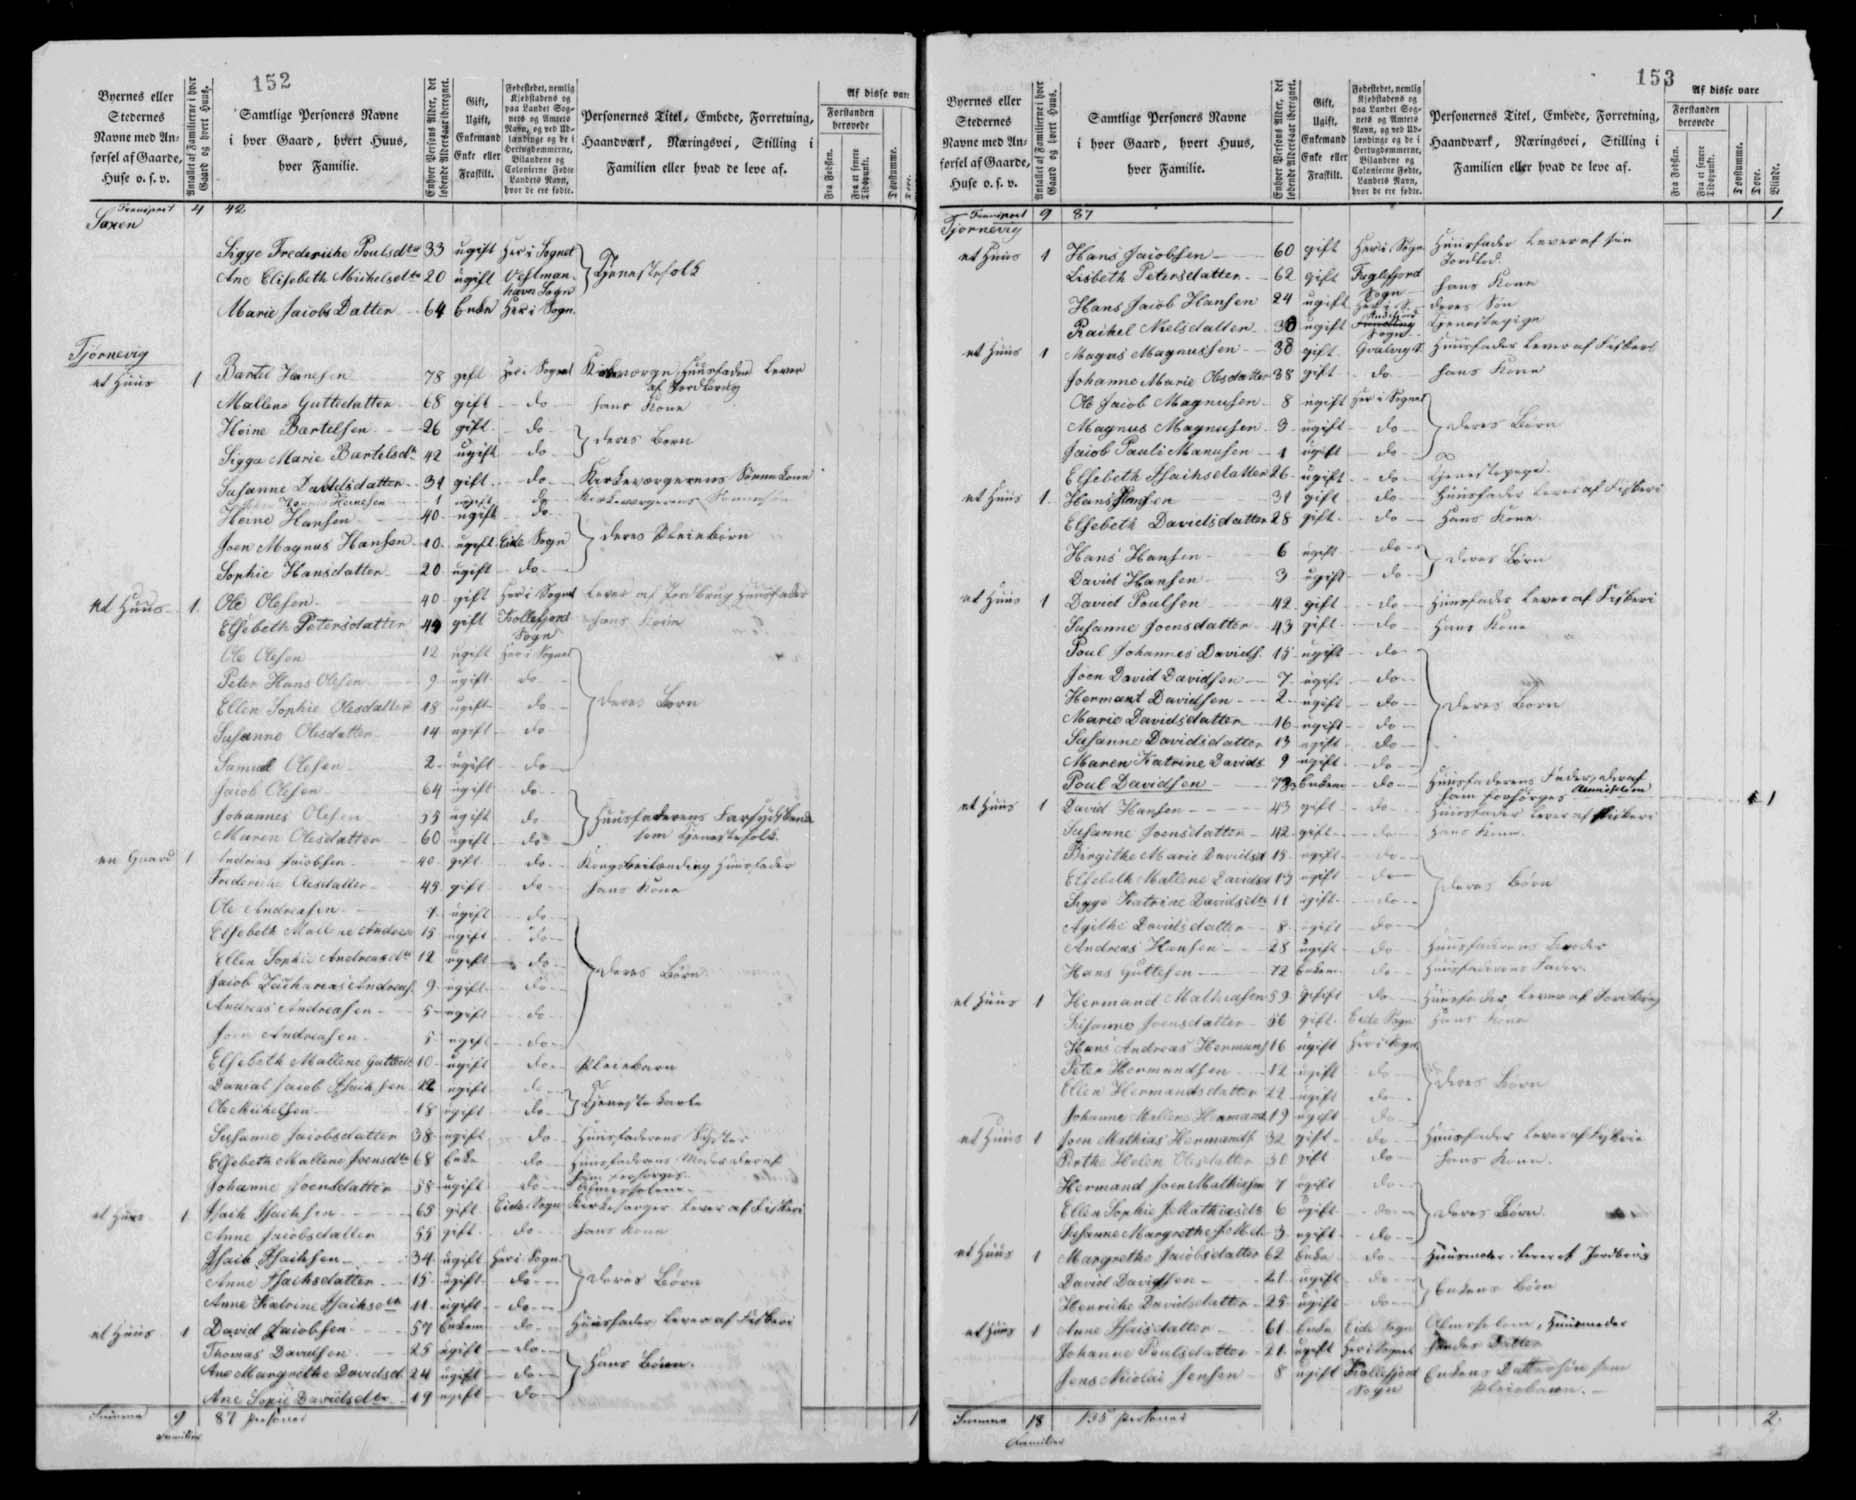 152
Byernes eller Stedernes Navne med Anførsel af Gaarde, Huse o. s. v.
Antallet af Familierne i hver Gaard og hvert Huus.
Samtlige Personers Navne i hver Gaard, hvert Huus, hver Familie.
Enhver Persons Alder, det løbende Aldersaar iberegnet.
Gift, Ugift, Enkemand Enke eller Fraskilt.
Fødestedet, nemlig Kjøbstadens og paa Landet Sognets og Amtets Navn, og ved Udlændinge og de i Hertugdømmerne, Bilandene og Colonierne Fødte Landets Navn, hvor de ere fødte.
Personernes Titel, Embede, Forretning, Haandværk, Næringsvei, Stilling i Familien eller hvad de leve af.
Af disse vare
Forstanden berøvede
Fra Fødslen.
Fra et senere Tidspunkt.
Døvstumme.
Transport 4 42
Saxen
Sigge Frederikke Poulsdtr 33 ugift Her i Sognet
Ane Elisebeth Michelsdtr 20 ugift Vestmanhavn Sogn } Tjenestefolk
Marie Jacobs Datter 64 Enke Her i Sogn.
Tjørnevig
et Huus 1 Bartel Hansen 78 gift Her i Sognet Kirkeværge, Huusfader Lever af Jordbrug
Mallene Guttedatter 68 gift do hans Kone
Heine Bartelsen 26 gift do
Sigga Marie Bartelsdr 42 ugift do } deres Børn
Susanne Davidsdatter 31 gift do Kirkeværgerens Sønnekone
Heinesen 1 ugift do Kirkeværgerens
Heine Hansen 40 ugift do
Joen Magnus Hansen 10 ugift Eide Sogn } deres Pleiebørn
Sophie Hansdatter 20 ugift do
et Huus 1 Ole Olesen 40 gift Her i Sognet Lever af Jordbrug Huusfader
Elsebeth Petersdatter 44 gift Kollefjord Sogn hans Kone
Ole Olesen 12 ugift Her i Sognet
Peter Hans Olesen 9 ugift do
Ellen Sophie Olesdatter 18 ugift do } deres Børn
Susanne Olesdatter 14 ugift do
Samuel Olesen 2 ugift do
Jacob Olesen 64 ugift do
Johannes Olesen 55 ugift do } Huusfaderens som tjenestefolk
Maren Olesdatter 60 ugift do
en Gaard 1 Andreas Jacobsen 40 gift do Huusfader
Frederikke Olesdatter 45 gift do hans Kone
Ole Andreasen ugift do
Elsebeth Mallene Andreasd 15 ugift do
Ellen Sophie Andreasdtr 12 ugift do
Jacob Zacharias Andreas. 9 ugift do } deres Børn
Andreas Andreasen 5 ugift do
Joen Andreasen 5 ugift do
Elsebeth Mallene Guttesdr 10 ugift do Pleiebarn
Danial Jacob Isaksen 22 ugift do
Ole Michelsen 18 ugift do } Tjenestekarle
Susanne Jacobsdatter 38 ugift do Huusfaderens Søster
Elsebeth Mallene Joensdtr 68 Enke do Huusfaderens Moder deraf ham forsørges
Johanne Joensdatter 58 ugift do Almisselem
et Huus 1 Isach Isachsen 65 gift Eide Sogn Kirkesanger Lever af Fiskeri
Anne Jacobsdatter 55 gift do hans Kone
Isach Isachsen 34 ugift Her i Sogn
Anne Isachsdatter 15 ugift do } deres Børn
Anne Katrine Isachsdtr 11 ugift do
et Huus 1 David Jacobsen 57 Enkem do Huusfader, Lever af Fiskeri
Thomas Davidsen 25 ugift do
Ane Margrethe Davidsd 24 ugift do } Hans Børn
Ane Sopie Davidsdtr 19 ugift do
Summa 9 Familier 87 Personer 1
153
Byernes eller Stedernes Navne med Anførsel af Gaarde, Huse o. s. v.
Antallet af Familierne i hver Gaard og hvert Huus.
Samtlige Personers Navne i hver Gaard, hvert Huus, hver Familie.
Enhver Persons Alder, det løbende Aldersaar iberegnet.
Gift, Ugift, Enkemand Enke eller Fraskilt.
Fødestedet, nemlig Kjøbstadens og paa Landet Sognets og Amtets Navn, og ved Udlændinge og de i Hertugdømmerne, Bilandene og Colonierne Fødte Landets Navn, hvor de ere fødte.
Personernes Titel, Embede, Forretning, Haandværk, Næringsvei, Stilling i Familien eller hvad de leve af.
Af disse vare
Forstanden berøvede
Fra Fødslen.
Fra et senere Tidspunkt.
Døvstumme.
Døve.
Blinde.
Transport 9 87 1
Tjørnevig
et Huus 1 Hans Jacobsen 60 gift Her i Sogn Huusfader Lever af sin Jordlod.
Lisbeth Petersdatter 62 gift Fuglefjord Sogn hans Kone
Hans Jacob Hansen 24 ugift Her i S. deres Søn
Rachel Nielsdatter 30 ugift Sogn Tjenestepige
et Huus 1 Magnus Magnussen 38 gift Qvalvig S. Huusfader Lever af Fiskeri
Johanne Marie Olesdatter 38 gift do hans Kone
Ole Jacob Magnusen 8 ugift Her i Sognet
Magnus Magnusen 3 ugift do } deres Børn
Jacob Pauli Manusen 1 ugift do
Elsebeth Isachsdatter 26 ugift do Tjenestepige
et Huus 1 Hans Hansen 31 gift do Huusfader Lever af Fiskeri
Elsebeth Davidsdatter 28 gift do Hans Kone
Hans Hansen 6 ugift do
David Hansen 3 ugift do } deres Børn
et Huus 1 David Poulsen 42 gift do Huusfader Lever af Fiskeri
Susanne Joensdatter 43 gift do Hans Kone
Poul Johannes Davids. 15 ugift do
Joen David Davidsen 7 ugift do
Hermant Davidsen 2 ugift do } deres Børn
Marie Davidsdatter 16 ugift do
Susanne Davidsdatter 13 ugift do
Maren Katrine Davids 9 ugift do
Poul Davidsen 78 Enkem do Huusfaderens Fader, deraf ham forsørges Almisselem 1
et Huus 1 David Hansen 43 gift do Huusfader Lever af Fiskeri
Susanne Joensdatter 42 gift do Hans Kone
Birgithe Marie Davidsd 15 ugift do
Elsebeth Mallene Davidsd 13 ugift do } deres Børn
Sigge Katrine Davidsdtr 11 ugift do
Agithe Davidsdatter 8 ugift do
Andreas Hansen 28 ugift do Huusfaderens Broder
Hans Guttesen 72 Enkem do Huusfaderens Fader
et Huus 1 Hermand Mathiasen 59 gift do Huusfader Lever af Jordbrug
Susanne Joensdatter 56 gift Eide Sogn Hans Kone
Hans Andreas Hermans 16 ugift Her i Sogn
Peter Hermandsen 12 ugift do
Ellen Hermandsdatter 22 ugift do } deres Børn
Johanne Mallene Hermans 19 ugift do
et Huus 1 Joen Mathias Hermands. 32 gift do Huusfader Lever af Fiskeri
Birthe Helen Olesdatter 30 gift do hans Kone
Hermand Joen Mathiesen 7 ugift do
Ellen Sophie J. Mathiasdtr 6 ugift do } deres Børn
Susanne Margrethe J. M.d. 3 ugift do
et Huus 1 Margrethe Jacobsdatter 62 Enke do Huusmoder Lever af Jordbrug
David Davidsen 21 ugift do
Henrikke Davidsdatter 25 ugift do } Enkens Børn
et Huus 1 Anne Isaisdatter 61 Enke Eide Sogn Almisselem, Huusmoder
Johanne Poulsdatter 21 ugift Her i Sognet hendes Datter
Jens Nicolai Jensen 8 ugift Kollefjord Sogn Enkens Dattersøn som Pleiebarn.
Summa 18 Familier 135 Personer 2